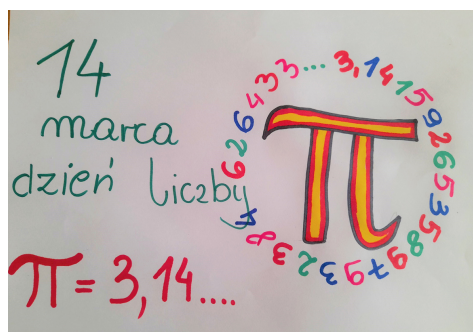 14
marca
dzień liczby
π = 3,14....
3,1415926535897932384626433...
π